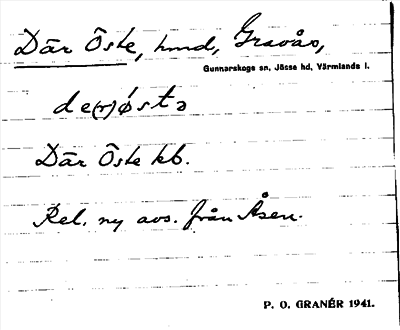 Där Öste, hmd, Gravås,
Gunnarskogs sn, Jösse hd, Värmlands l.
de(r)östə
Där Öste kb.
Rel. ny avs. från Åsen.
P. O. GRANÉR 1941.